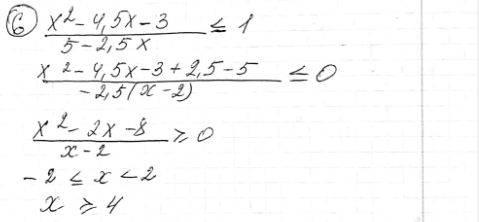 6 (x² - 4,5x - 3)/(5 - 2,5x) ≤ 1
(x² - 4,5x - 3 + 2,5 - 5)/(-2,5(x - 2)) ≤ 0
(x² - 2x - 8)/(x - 2) ≥ 0
-2 ≤ x < 2
x ≥ 4